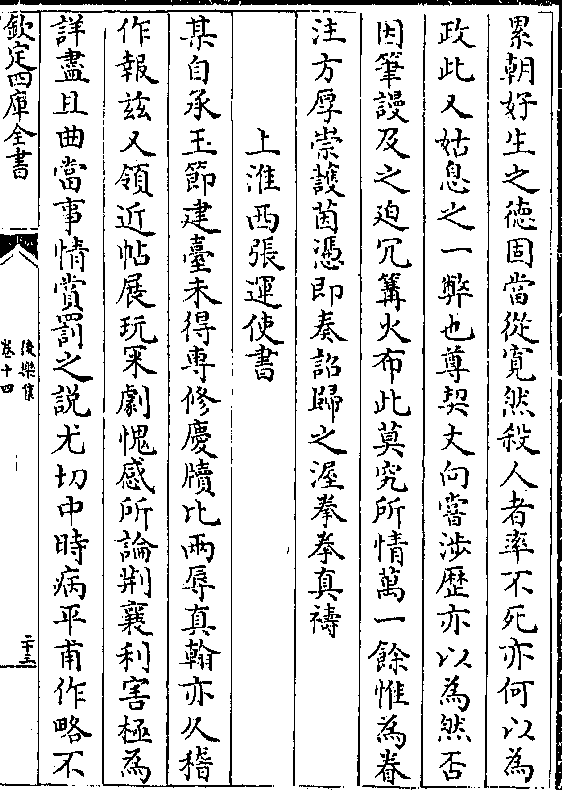 累朝好生之德固當從寛然殺人者率不死亦何以為
政此又姑息之一弊也尊契丈向嘗渉歴亦以為然否
因筆謾及之迫冗篝火布此莫究所情萬一餘惟為眷
注方厚崇護茵憑即奏詔歸之渥拳拳真禱
上淮西張運使書
某自承玉節建臺未得専修慶牘比兩辱真翰亦久稽
作報兹又領近帖展玩罙劇愧感所論荆襄利害極為
詳盡且曲當事情賞罰之説尤切中時病平甫作略不
欽定四庫全書
後樂集
卷十四
二十三